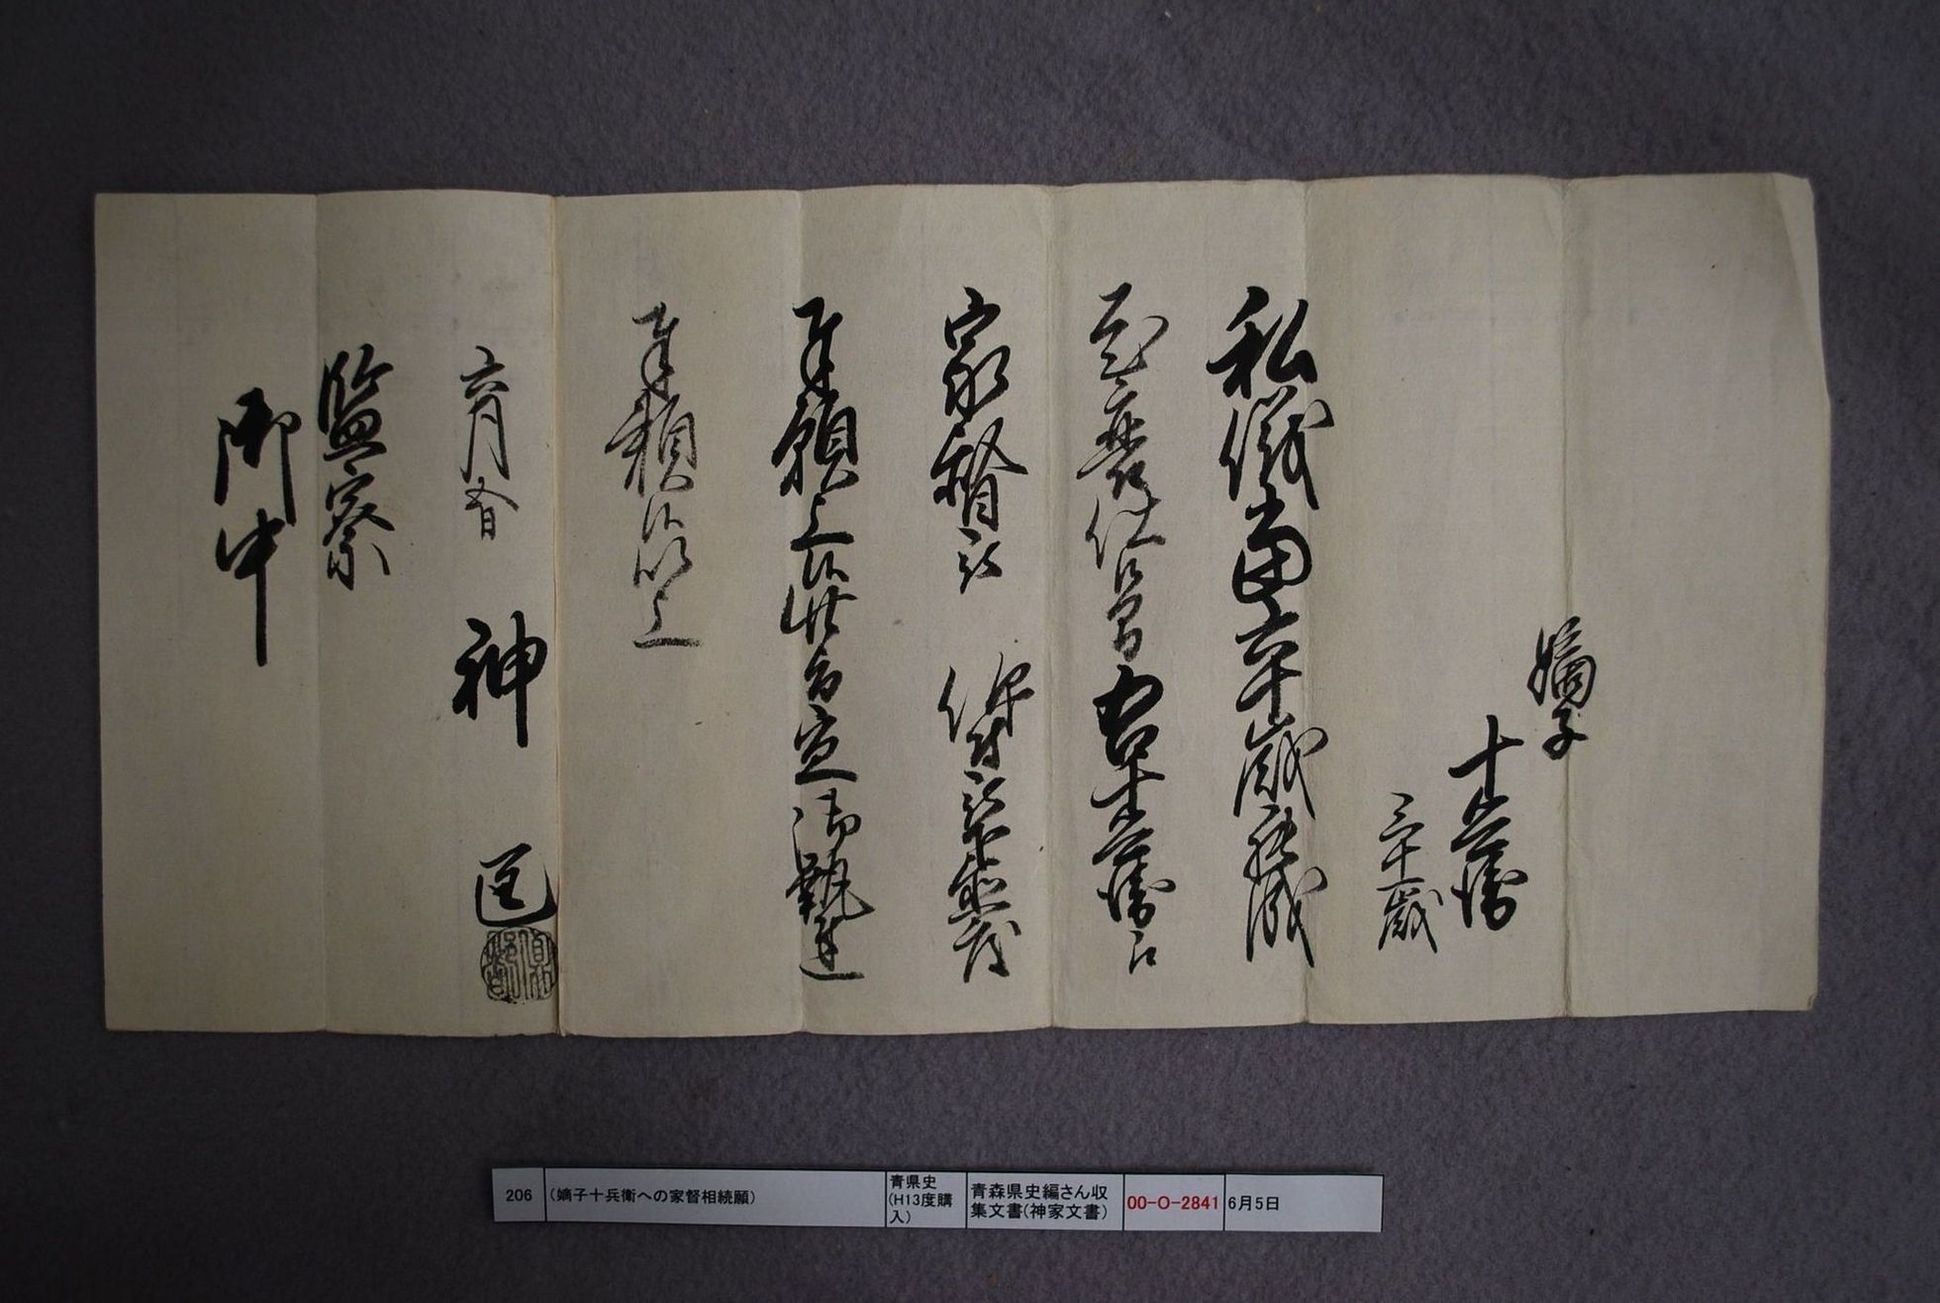 嫡子
十兵衛
三十一歳
私儀当六十歳罷成
老衰仕候間右十兵衛江
家督被 仰付被下置度
奉願上候此旨宜御執達
奉頼候以上
六月五日 神 匡
監察
御中
206 (嫡子十兵衛への家督相続願) 青県史(H13度購入) 青森県史編さん収集文書(神家文書) 00-O-2841 6月5日